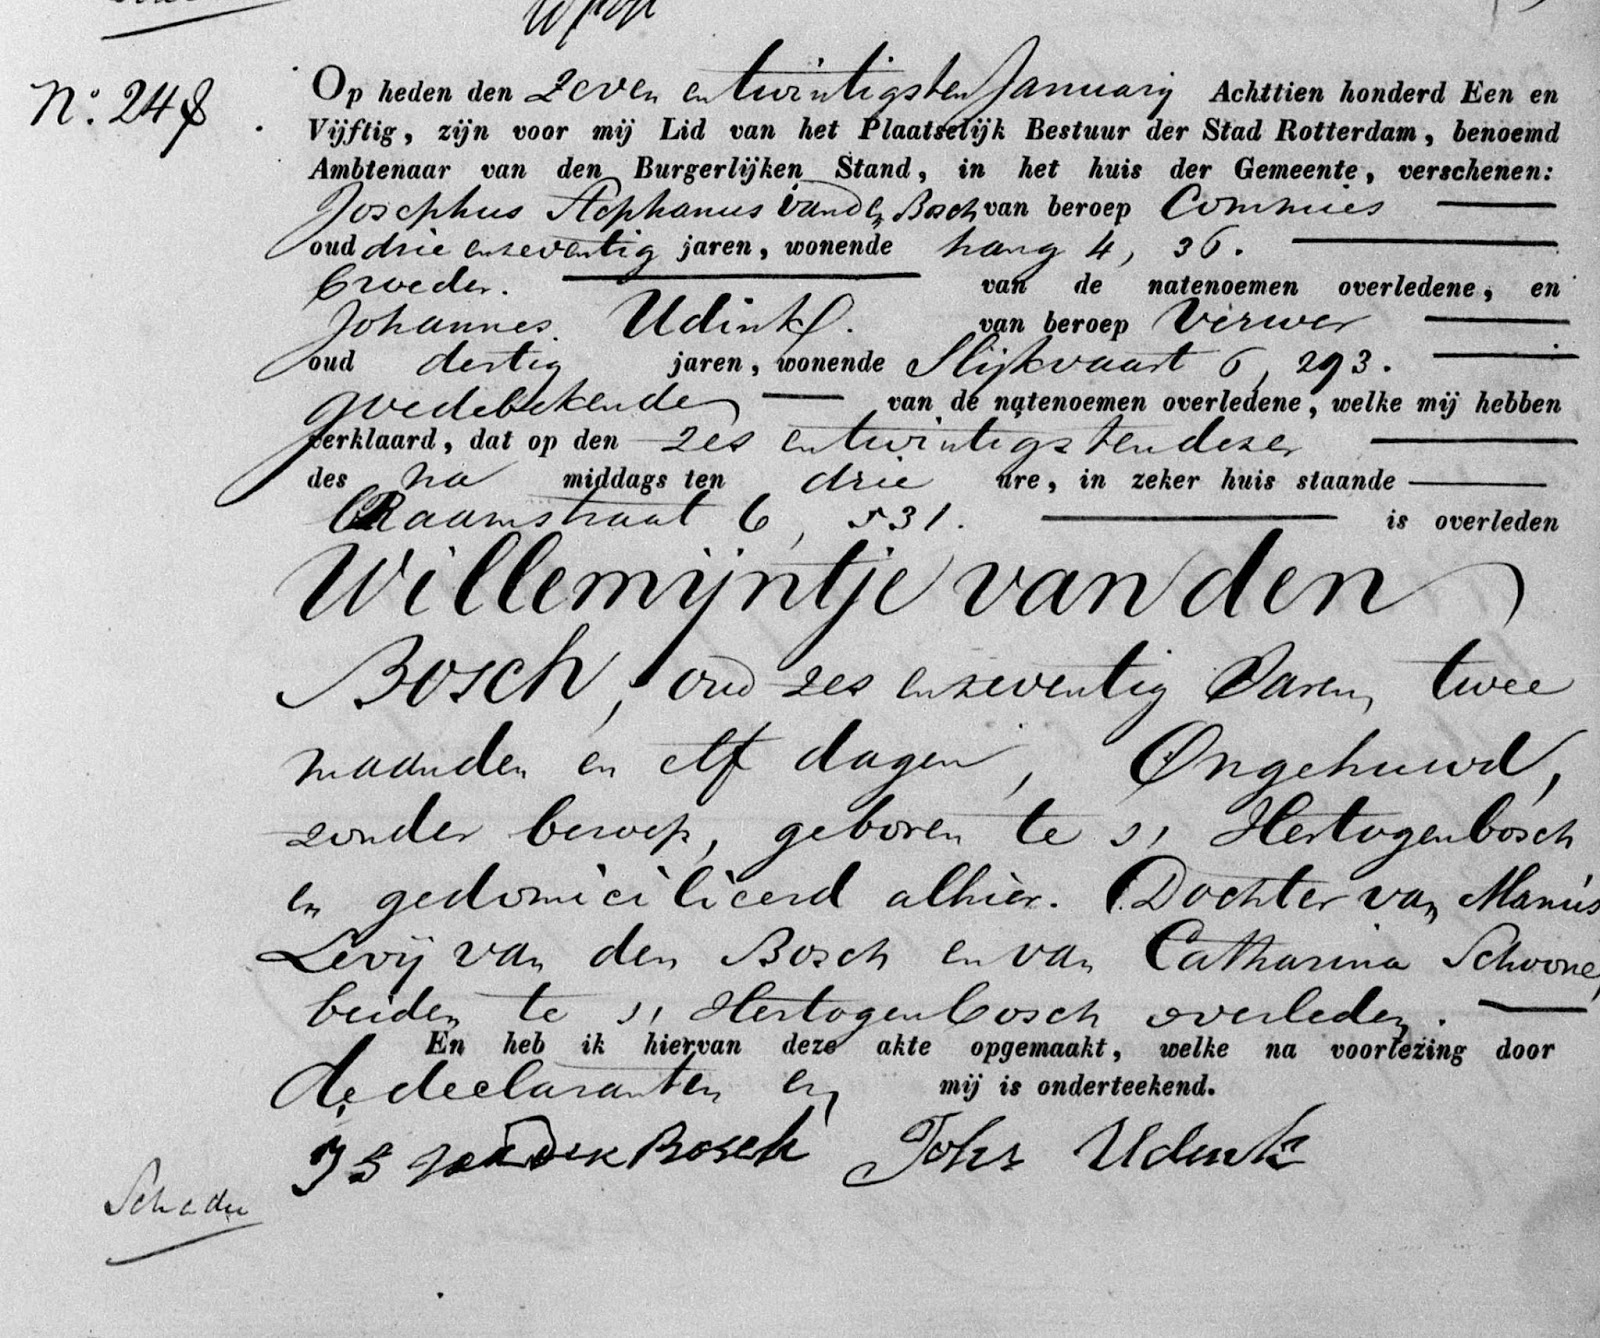 No. 248
Op heden den zeven en twintigsten January Achttien honderd Een en
Vijftig, zijn voor mij Lid van het Plaatselijk Bestuur der Stad Rotterdam, benoemd
Ambtenaar van den Burgerlijken Stand, in het huis der Gemeente, verschenen:
Josephus Stephanus van den Bosch van beroep Commies
oud drie enzeventig jaren, wonende hang 4, 36.
broeder. van de natenoemen overledene, en
Johannes Udink. van beroep Verwer
oud dertig jaren, wonende Slijkvaart 6, 293.
goedebekende van de natenoemen overledene, welke mij hebben
verklaard, dat op den zes en twintigsten dezer
des na middags ten drie ure, in zeker huis staande
Raamstraat 6, 531. is overleden
Willemijntje van den
Bosch, oud zes enzeventig Jaren, twee
maanden en elf dagen, Ongehuwd,
zonder beroep, geboren te s, Hertogenbosch
en gedomicilieerd alhier. Dochter van Manus
Levij van den Bosch en van Catharina Schoone,
beiden te s, Hertogenbosch overleden.
En heb ik hiervan deze akte opgemaakt, welke na voorlezing door
de declaranten en mij is onderteekend.
J S van den Bosch Johs Udink